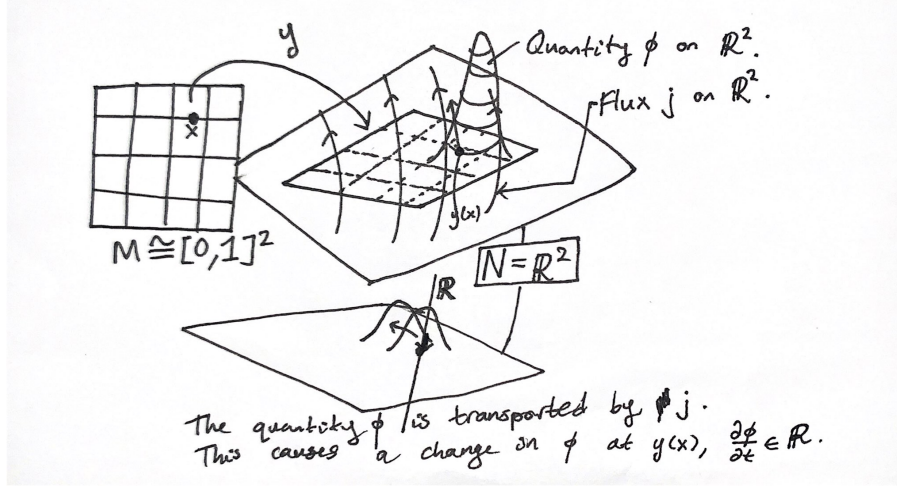 y
Quantity ϕ on ℝ².
Flux j on ℝ².
x
y(x)
M≅[0,1]²
N=ℝ²
ℝ
The quantity ϕ is transported by j.
This causes a change in ϕ at y(x), ∂ϕ/∂t ∈ ℝ.